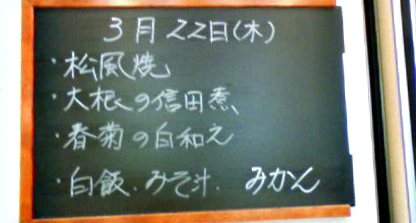 3月22日(木)
・松風焼
・大根の信田煮
・春菊の白和え
・白飯.みそ汁.みかん